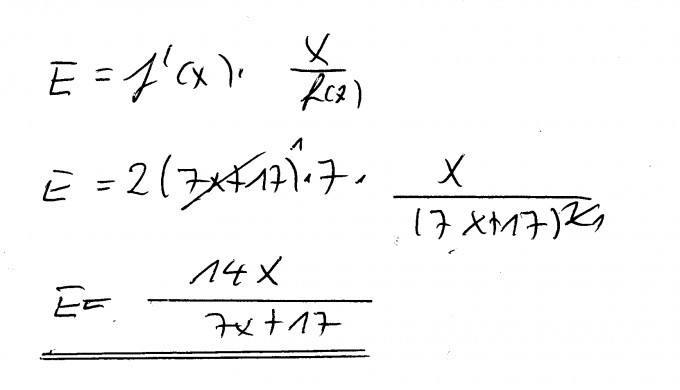 E = f'(x) · x/f(x)
E = 2(7x+17)^1 · 7 · x/(7x+17)^2 1
E = 14x/7x+17